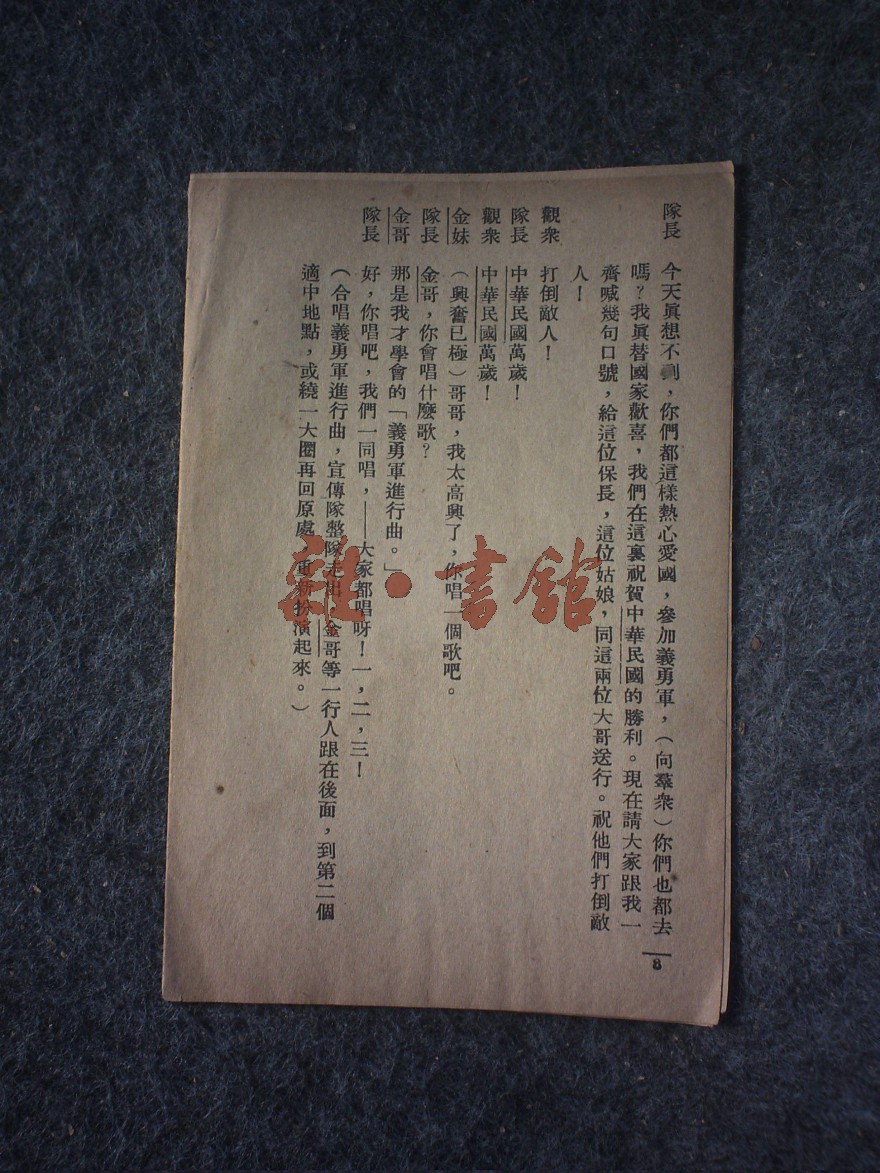 隊長　今天眞想不到，你們都這樣熱心愛國，參加義勇軍，（向羣衆）你們也都去
嗎？我眞替國家歡喜，我們在這裏祝賀中華民國的勝利。現在請大家跟我一
齊喊幾句口號，給這位保長，這位姑娘，同這兩位大哥送行。祝他們打倒敵
人！
觀衆　打倒敵人！
隊長　中華民國萬歲！
觀衆　中華民國萬歲！
金妹　（興奮已極）哥哥，我太高興了，你唱一個歌吧。
隊長　金哥，你會唱什麼歌？
金哥　那是我才學會的「義勇軍進行曲。」
隊長　好，你唱吧，我們一同唱，——大家都唱呀！一，二，三！
（合唱義勇軍進行曲，宣傳隊整隊走出，金哥等一行人跟在後面，到第二個
適中地點，或繞一大圈再回原處，重新扮演起來。）
8
雜·書館